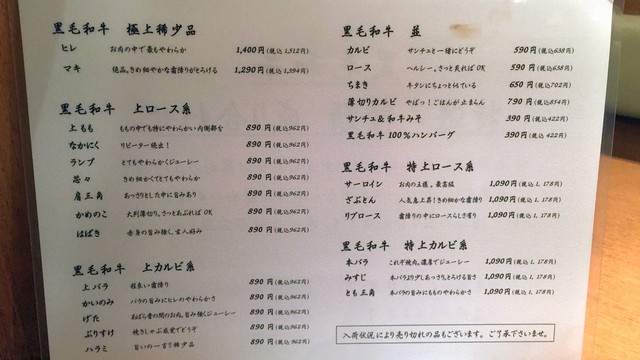 黒毛和牛 極上稀少品
ヒレ お肉の中で最もやわらか 1,400円(税込1,512円)
マキ 絶品。きめ細やかな霜降がとろける 1,290円(税込1,394円)
黒毛和牛 上ロース系
上もも ももの中でも特にやわらかい内側部分 890円(税込962円)
なかにく リピーター続出! 890円(税込962円)
ランプ とてもやわらかくジューシー 890円(税込962円)
芯々 きめ細かくてとてもやわらか 890円(税込962円)
肩三角 あっさりとした中に旨みあり 890円(税込962円)
かめのこ 大判薄切り。さっとあぶればOK 890円(税込962円)
はばき 赤身の旨み強く、玄人好み 890円(税込962円)
黒毛和牛 上カルビ系
上バラ 程良い霜降り 890円(税込962円)
かいのみ バラの旨みにヒレのやわらかさ 890円(税込962円)
げた あばら骨の間のお肉。旨み強くジューシー 890円(税込962円)
ぶりすけ 焼きしゃぶ感覚でどうぞ 890円(税込962円)
ハラミ 旨いの一言!!稀少品 890円(税込962円)
黒毛和牛 並
カルビ サンチュと一緒にどうぞ 590円(税込638円)
ロース ヘルシー。さっと炙ればOK 590円(税込638円)
ちまき キタンにちょっと似ている 650円(税込702円)
薄切りカルビ やばっ!ごはんが止まらん 790円(税込854円)
サンチュ&和牛みそ 390円(税込422円)
黒毛和牛100%ハンバーグ 390円(税込422円)
黒毛和牛 特上ロース系
サーロイン お肉の王様。最高級 1,090円(税込1,178円)
ざぶとん 人気急上昇!きめ細かな霜降り 1,090円(税込1,178円)
リブロース 霜降りの中にロースらしさ有り 1,090円(税込1,178円)
黒毛和牛 特上カルビ系
本バラ これぞ焼肉。濃厚でジューシー 1,090円(税込1,178円)
みすじ 本バラより少しあっさり。とろける旨さ 1,090円(税込1,178円)
とも三角 バラの旨みにもものやわらかさ 1,090円(税込1,178円)
入荷状況により売り切れの品もございます。ご了承下さいませ。